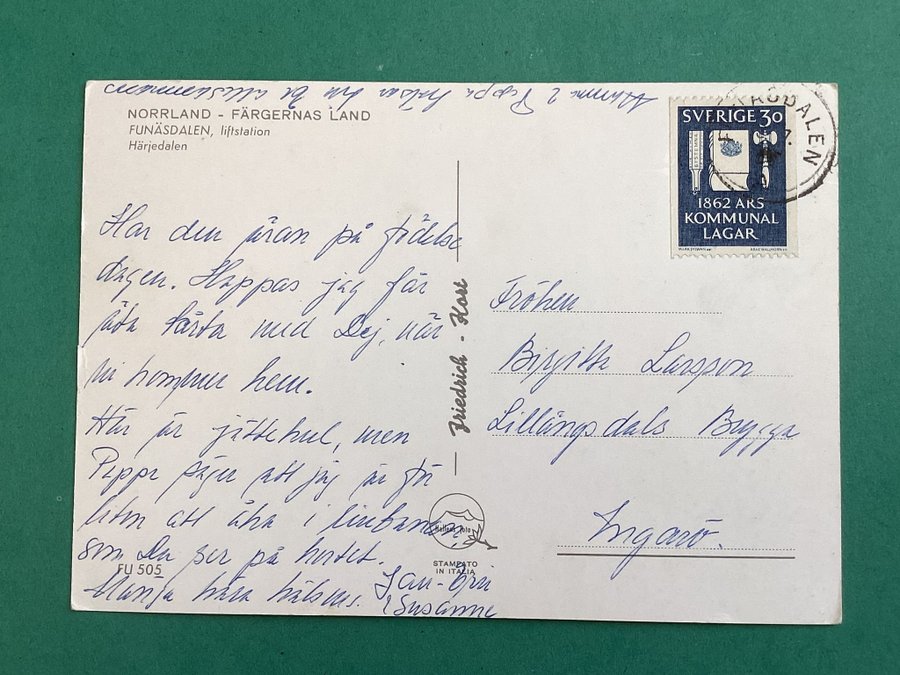 NORRLAND - FÄRGERNAS LAND
FUNÄSDALEN, liftstation
Härjedalen
Har den äran på födelse
dagen. Hoppas jag får
äta tårta med Dej, när
ni kommer hem.
Här är jättekul, men
Pappa säger att jag är för
liten att åka i linbanan,
som Du ser på kortet.
Många kära hälsn.
Susanne
FU 505
Friedrich - Kort
STAMPATO
IN ITALIA
SVERIGE 30
1862 ÅRS
KOMMUNAL
LAGAR
DALEN
Fröken
Birgitta Larsson
Lillängsdals Brygga
Ingarö.